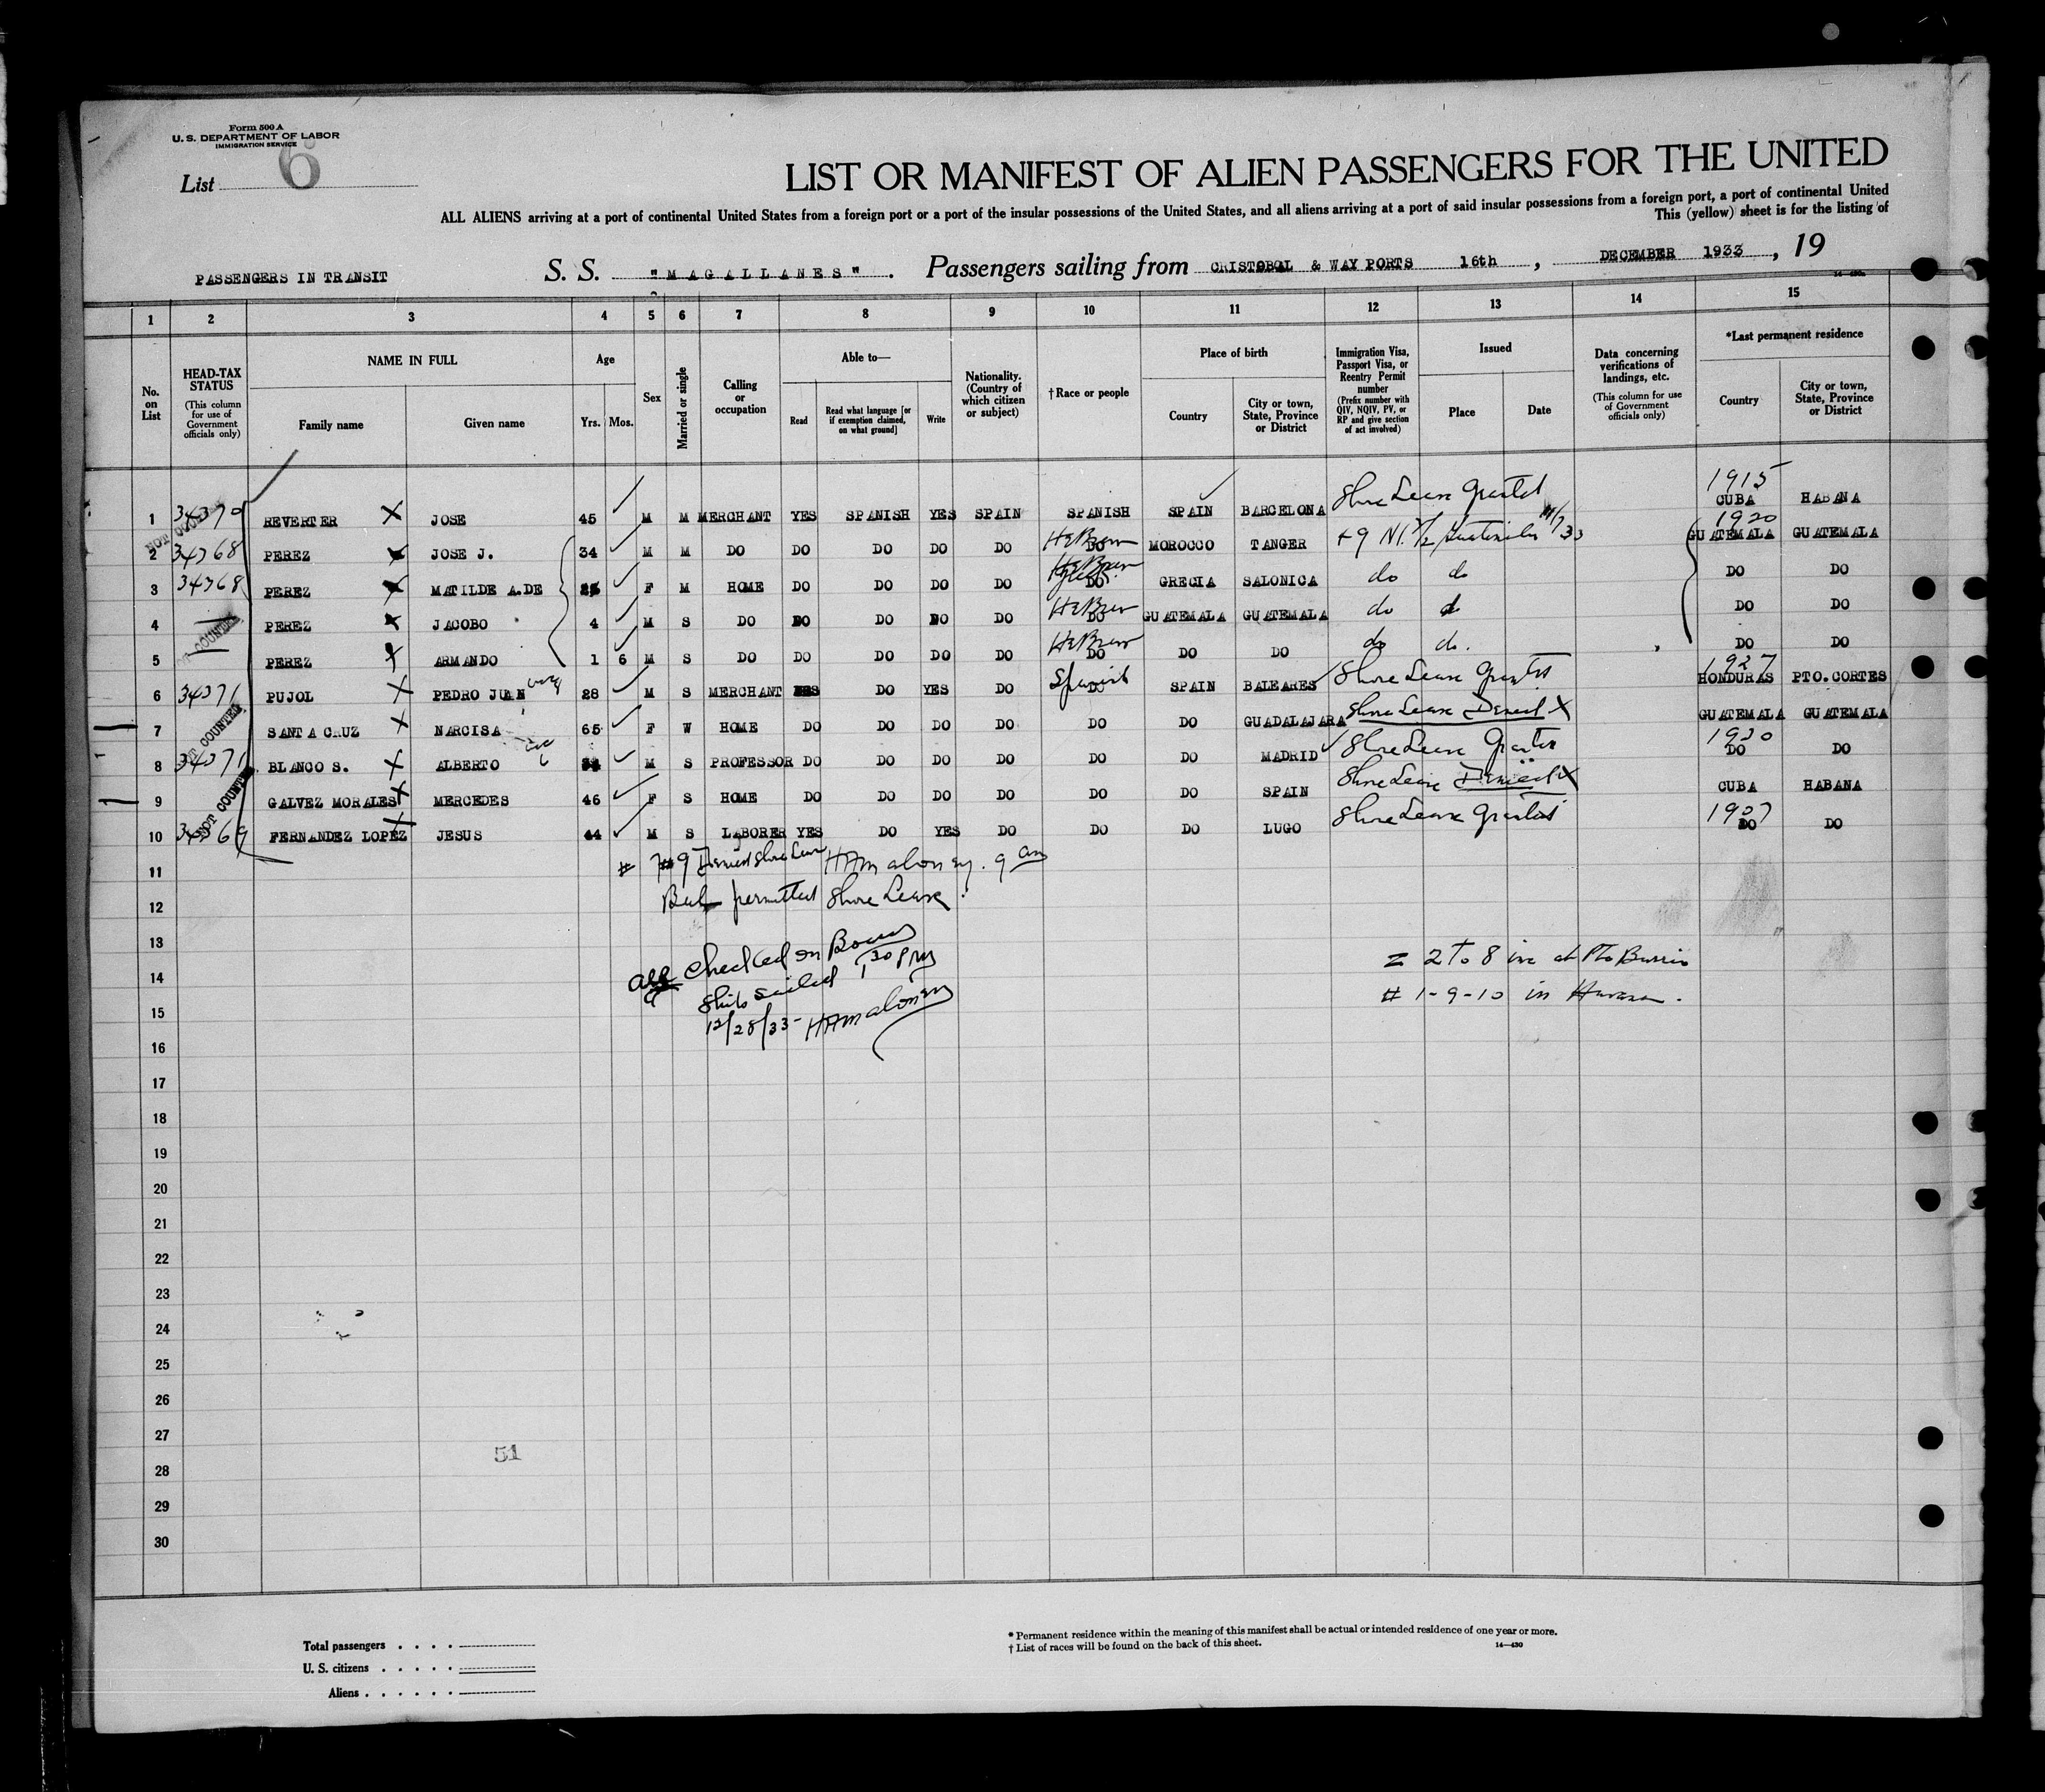 Form 500 A
U. S. DEPARTMENT OF LABOR
IMMIGRATION SERVICE
List 6
LIST OR MANIFEST OF ALIEN PASSENGERS FOR THE UNITED
ALL ALIENS arriving at a port of continental United States from a foreign port or a port of the insular possessions of the United States, and all aliens arriving at a port of said insular possessions from a foreign port, a port of continental United
This (yellow) sheet is for the listing of
PASSENGERS IN TRANSIT S. S. "MAGALLANES" . Passengers sailing from CRISTOBAL & WAY PORTS 16th , DECEMBER 1933 , 19
1 2 3 4 5 6 7 8 9 10 11 12 13 14 15
No. on List
HEAD-TAX STATUS (This column for use of Government officials only)
NAME IN FULL Family name Given name
Age Yrs. Mos.
Sex
Married or single
Calling or occupation
Able to— Read Read what language [or if exemption claimed, on what ground] Write
Nationality. (Country of which citizen or subject)
†Race or people
Place of birth Country City or town, State, Province or District
Immigration Visa, Passport Visa, or Reentry Permit number (Prefix number with QIV, NQIV, PV, or RP and give section of act involved)
Issued Place Date
Data concerning verifications of landings, etc. (This column for use of Government officials only)
*Last permanent residence Country City or town, State, Province or District
1 34370 REVERTER X JOSE 45 M M MERCHANT YES SPANISH YES SPAIN SPANISH SPAIN BARCELONA Shore Leave Granted 1915 CUBA HABANA
2 34368 PEREZ X JOSE J. 34 M M DO DO DO DO DO DO Hebrew MOROCCO TANGER 1920 GUATEMALA GUATEMALA
3 34368 PEREZ X MATILDE A.DE F M HOME DO DO DO DO DO Hebrew GRECIA SALONICA do do DO DO
4 PEREZ X JACOBO 4 M S DO DO DO DO DO DO Hebrew GUATEMALA GUATEMALA do do DO DO
5 PEREZ X ARMANDO 1 6 M S DO DO DO DO DO DO Hebrew DO DO do do. DO DO
6 34371 PUJOL X PEDRO JUAN 28 M S MERCHANT YES DO YES DO DO Spanish SPAIN BALEARES Shore Leave Granted 1927 HONDURAS PTO. CORTES
7 SANTA CRUZ X NARCISA 65 F W HOME DO DO DO DO DO DO GUADALAJARA Shore Leave Denied X GUATEMALA GUATEMALA
8 34371 BLANCO S. X ALBERTO M S PROFESSOR DO DO DO DO DO DO MADRID Shore Leave Granted 1920 DO DO
9 GALVEZ MORALES X MERCEDES 46 F S HOME DO DO DO DO DO DO SPAIN Shore Leave Denied X CUBA HABANA
10 34369 FERNANDEZ LOPEZ X JESUS 44 M S LABORER YES DO YES DO DO DO LUGO Shore Leave Granted 1907 DO DO
NOT COUNTED
NOT COUNTED
11 # 7 # 9 Denied Shore Leave HAMaloney. 9 am
12 But permitted Shore Leave.
13
14 All checked on Board = 2 to 8 inc at Pto Barrios
Ship sailed 1 30 PM
15 12/28/33 - HAMaloney # 1-9-10 in Havana.
16
17
18
19
20
21
22
23
24
25
26
27
51
28
29
30
Total passengers . . . .
U. S. citizens . . . . .
Aliens . . . . . .
* Permanent residence within the meaning of this manifest shall be actual or intended residence of one year or more.
† List of races will be found on the back of this sheet. 14—430